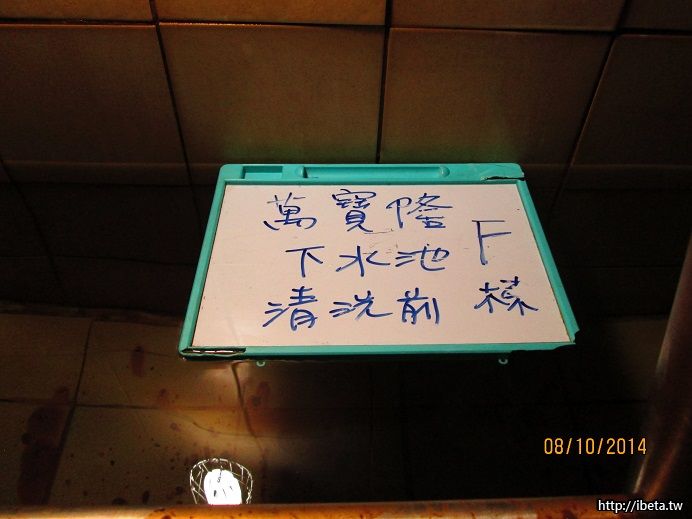 萬寶隆
下水池
清洗前
F
樣
08/10/2014
http://ibeta.tw